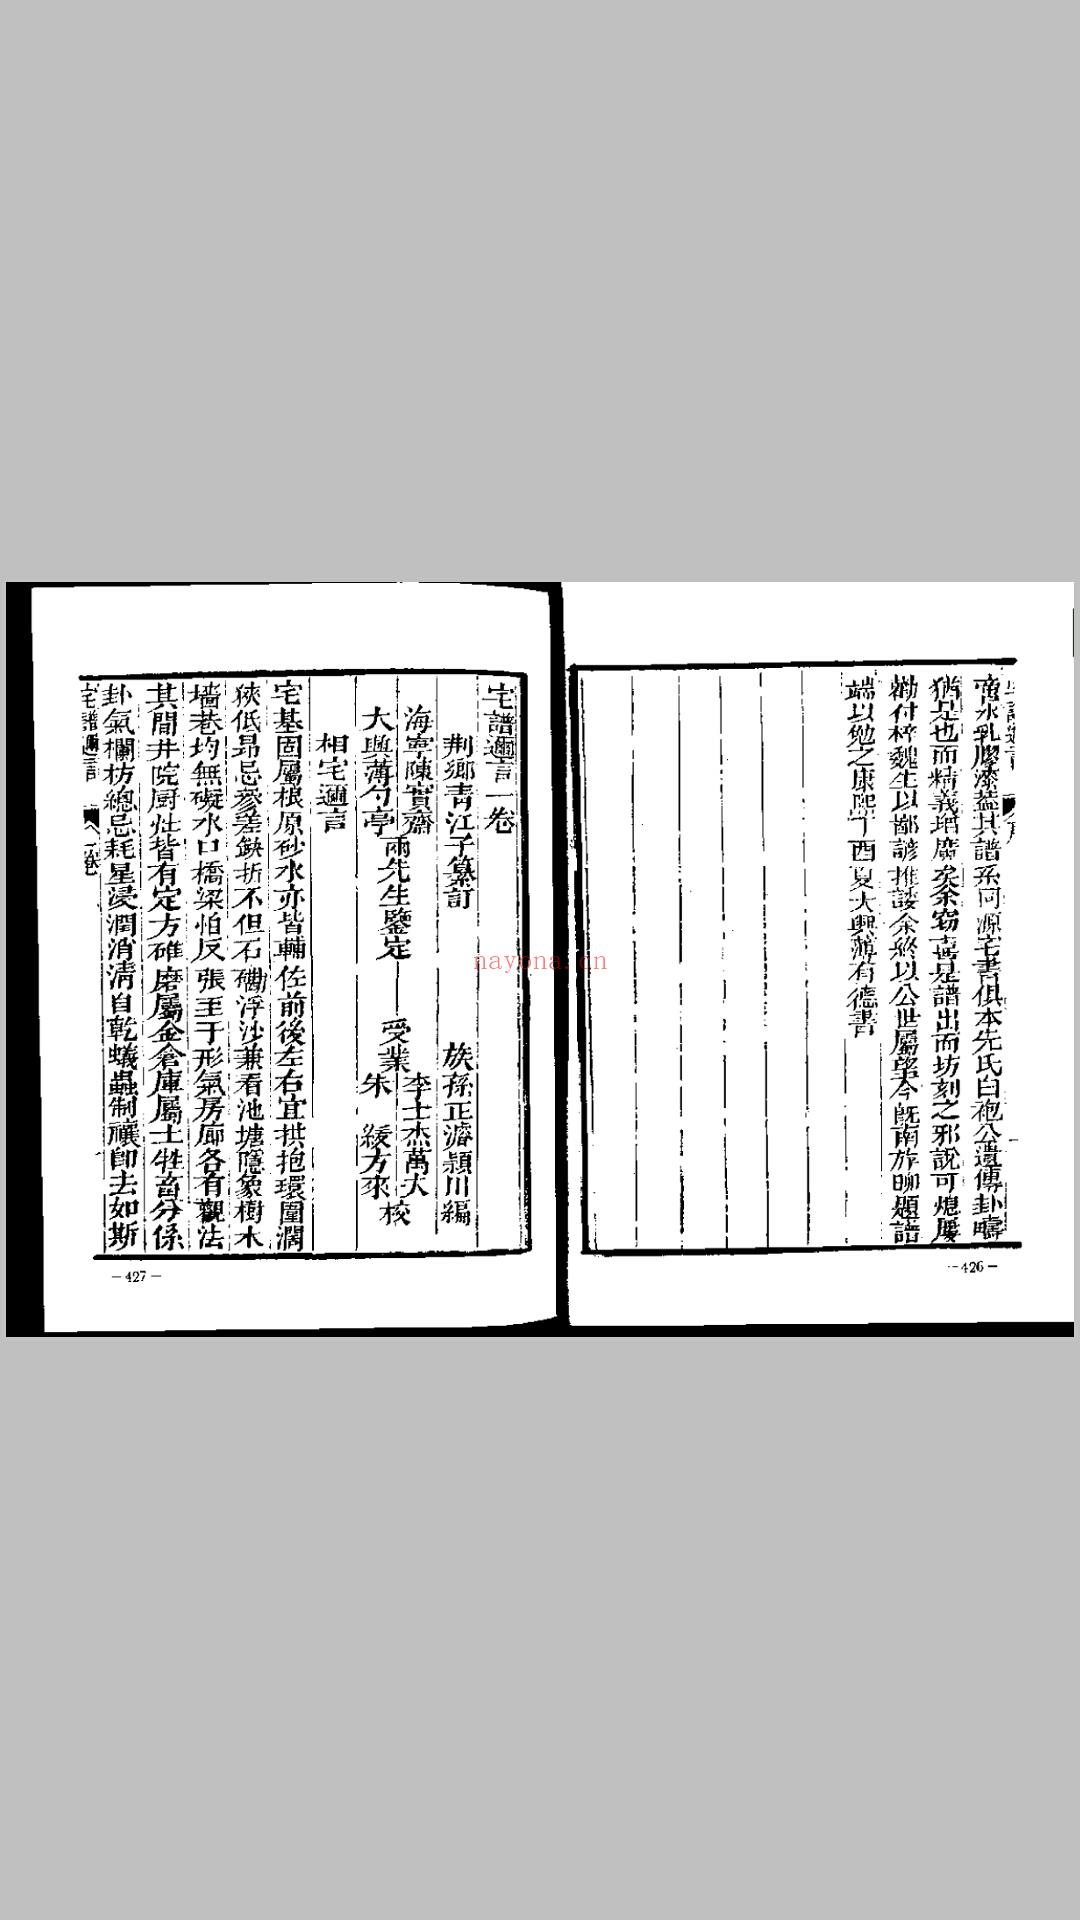 啻水乳膠漆蓋其譜系同源宅書俱本先氏白袍公遺傳卦疇
猶是也而精義增廣矣余竊喜是譜出而坊刻之邪說可熄屢
勸付梓魏生以鄙諺推諉余終以公世屬望今旣南旋聊題譜
端以勉之康熙丁酉夏大興薄有德書
—426—
宅譜邇言一卷
荆鄉青江子纂訂
族孫正濬頴川編
海寧陳實齋
大興薄勺亭
兩先生鑒定
受業
李士杰萬大
朱 綾方來
校
相宅邇言
宅基固屬根原砂水亦皆輔佐前後左右宜拱抱環圍濶
狹低昂忌參差缺折不但石磡浮沙兼看池塘隱象樹木
墻巷均無礙水口橋梁怕反張至于形氣房廊各有觀法
其間井院厨灶皆有定方碓磨屬金倉庫屬土牲畜分係
卦氣欄枋總忌耗星浸潤消淸自乾蟻蟲制禳卽去如斯
宅譜邇言
一卷
—427—
nayona.cn